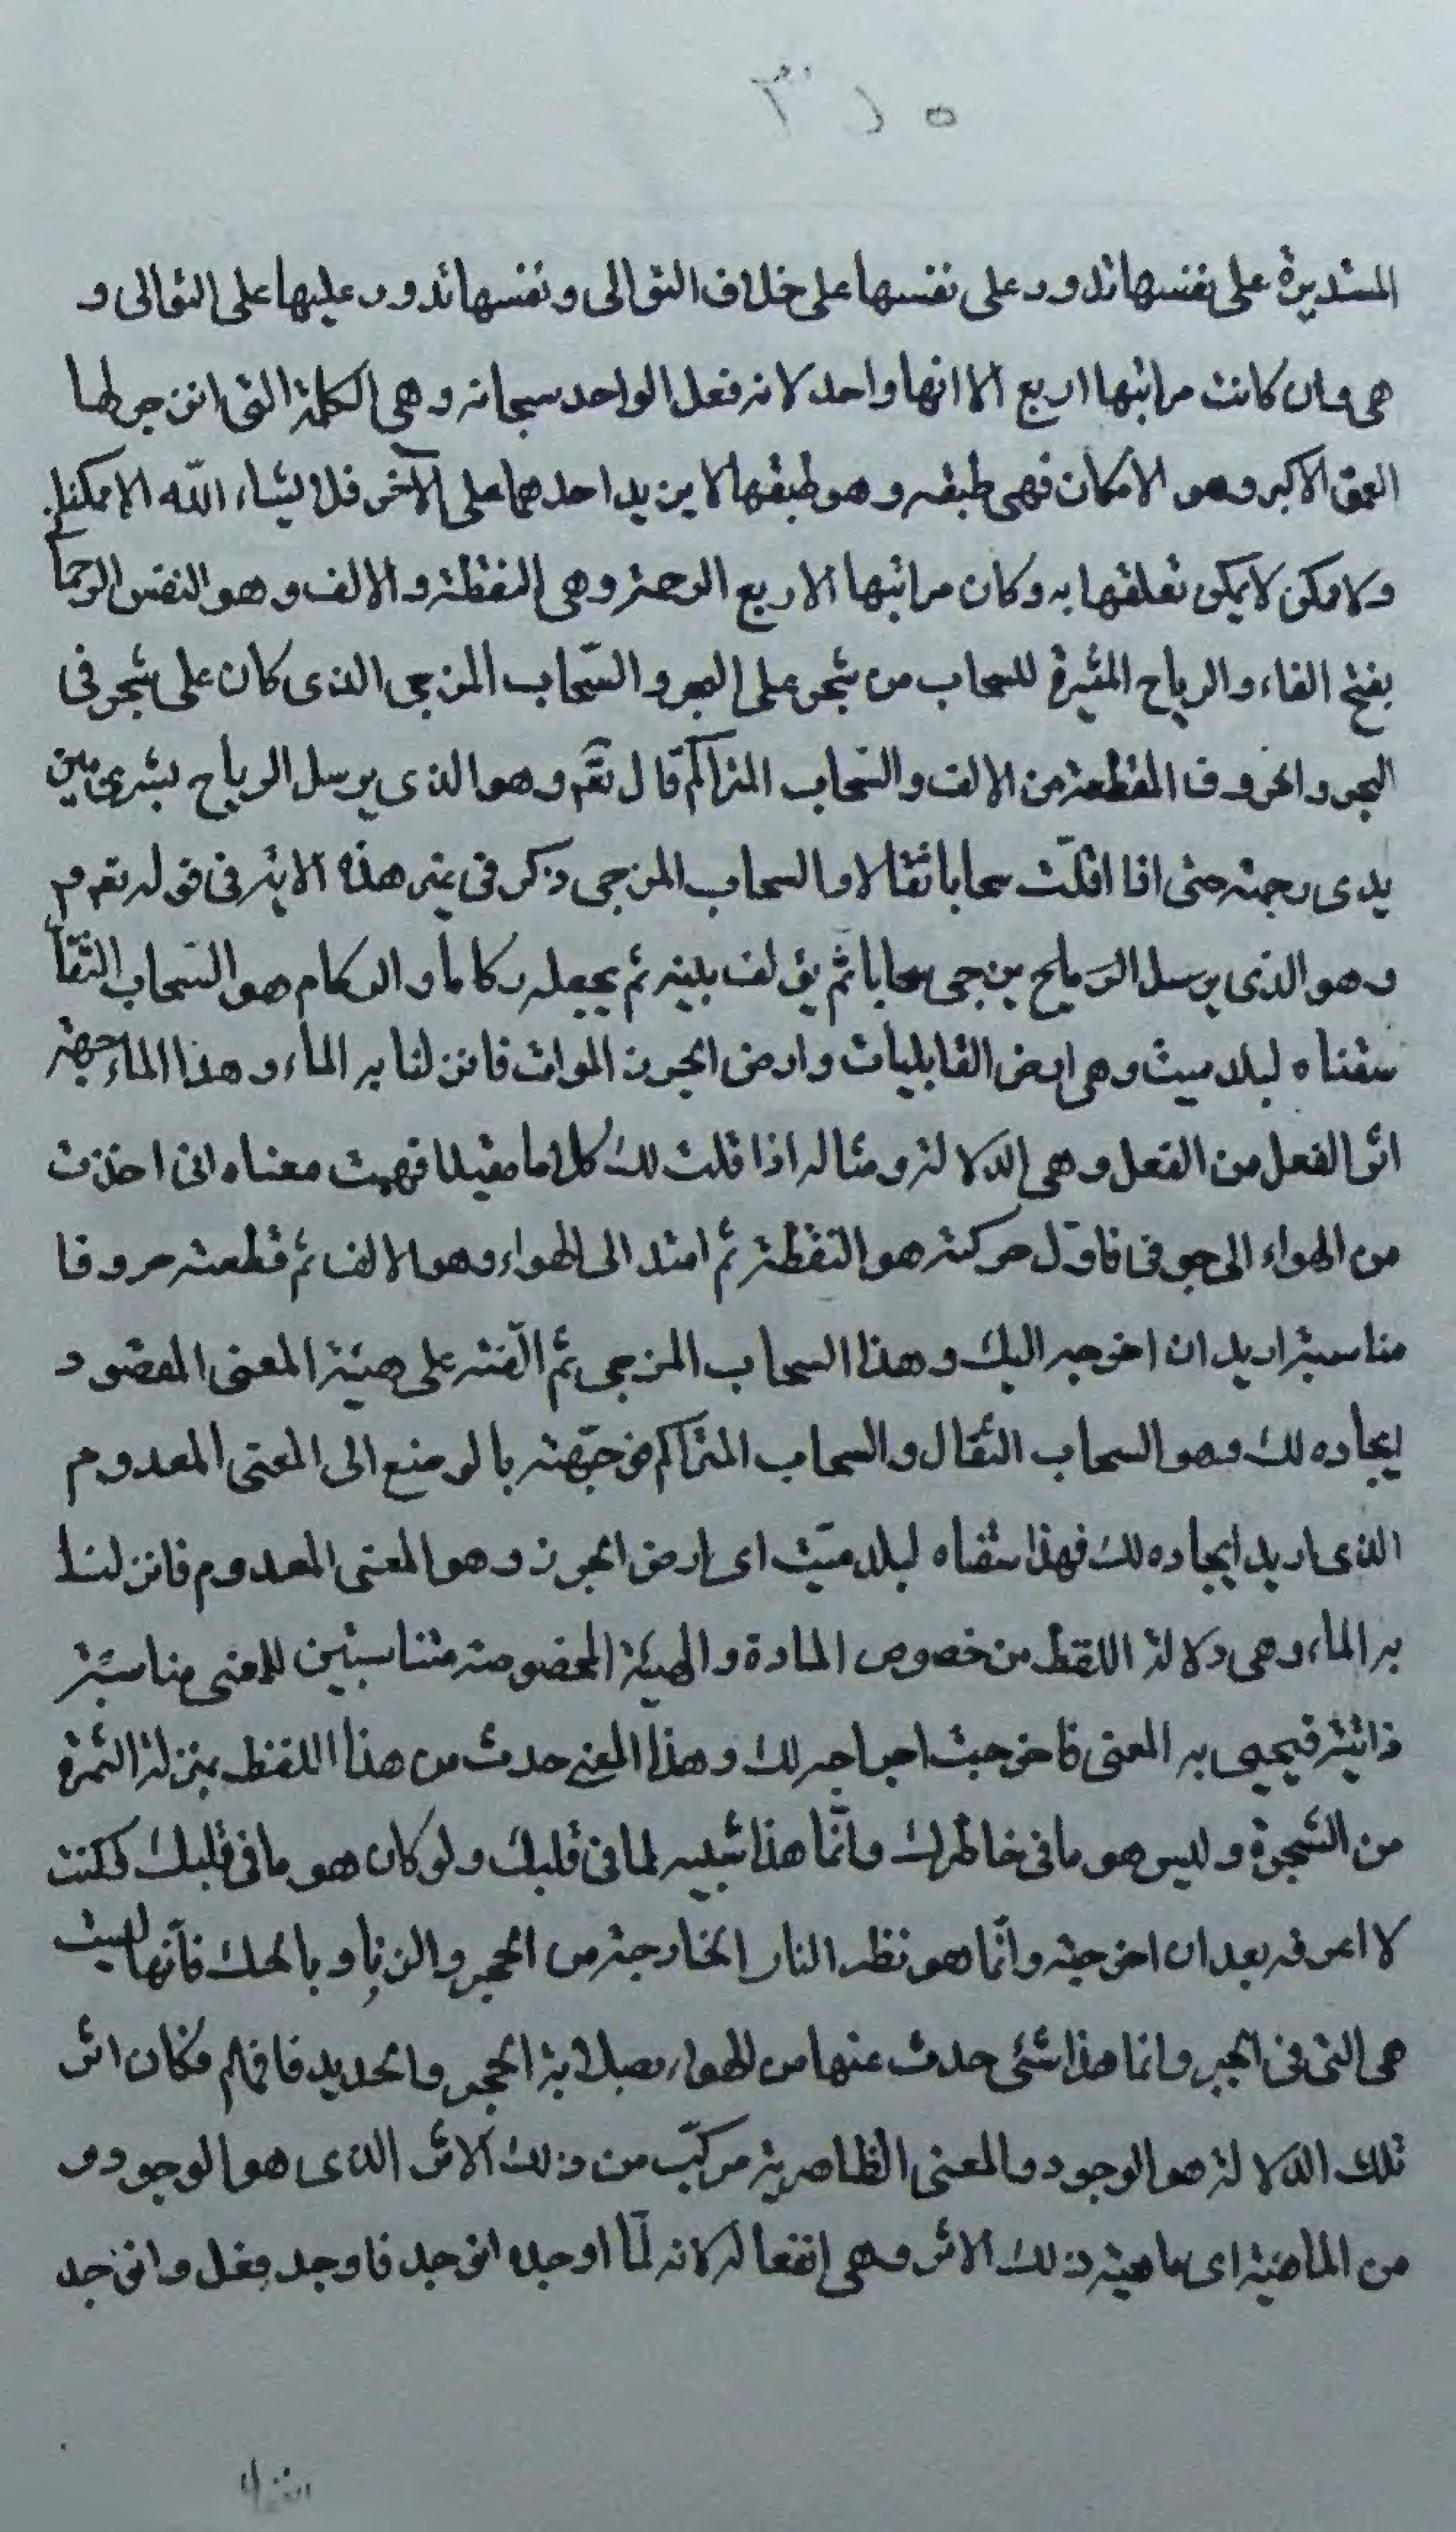 المستديرة على نفسها تدور على نفسها على خلاف التوالى و نفسها تدور عليها على التوالى و
هى وان كانت مراتبها اربع الا انها واحد لانه فعل الواحد سبحانه و هى الكلمة التى انزجر لها
العمق الاكبر وهو الامكان فهى طبقه و هو طبقها لا يزيد احدهما على الآخر فلا يشاء الله الا ممكنا
ولا ممكن لا يمكن تعلقها به و كان مراتبها الاربع الرحمة وهى النقطة و الالف و هو النفس الرحما
بفتح الفاء والرياح المثيرة للسحاب من شجر على البحر و السّحاب المزجى الذى كان على شجر فى
البحر والحروف المقطعة من الالف والسّحاب المتراكم قال تعٓ وهو الذى يرسل الرياح بشرى بين
يدى رحمته حتى اذا اقلّت سحابا ثقالا و السحاب المزجى ذكر فى غير هذه الاية فى قوله تعٓ و م
وهو الذى يرسل الرّياح يزجى سحابا ثم يؤلف بينه ثم يجعله ركاما و الركام هو السّحاب الثّقا
سقناه لبلد ميت و هى ارض القابليات وارض الجرز الموات فانزلنا به الماء و هذا الماء جهة
اثر الفعل من الفعل و هى الدلالة و مثاله اذا قلت لك كلاما مفيدا فهمت معناه انى اخذت
من الهواء الى جوفى فاوّل حركته هو النقطة ثم امتد الى الهواء وهو الالف ثم قطعته حروفا
مناسبة اريد ان اخرجه اليك و هذا السحاب المزجى ثم الّفته على هيئة المعنى المقصود
ايجاده لك وهو السحاب الثقال والسحاب المتراكم فوجّهته بالوضع الى المعنى المعدوم
الذى اريد ايجاده لك فهذا سقناه لبلد ميّت اى ارض الجرز و هو المعنى المعدوم فانزلنا
به الماء و هى دلالة اللفظ من خصوص المادة والهيئة المخصوصة متناسبتين للمعنى مناسبة
ذاتية فيحيى به المعنى فاخرجت احياءه لك و هذا المعنى حدث من هذا اللفظ بمنزلة الثمرة
من الشجرة و ليس هو ما فى خاطرك وانّما هذا شبيه لما فى قلبك ولو كان هو ما فى قلبك لكنت
لا اعرفه بعد ان اخرجته وانّما هو نظير النار الخارجة من الحجر والزناد بالحك فانّها ليست
هى التى فى الحجر وانما هذا شئى حدث عنها من الهواء بصلابة الحجر والحديد فافهم فكان اثر
تلك الدلالة هو الوجود والمعنى الظاهرية مركّب من ذلك الاثر الذى هو الوجود و
من الماهية اى ماهية ذلك الاثر وهى انفعاله لانه لمّا اوجده انوجد فاوجد فعل وانوجد